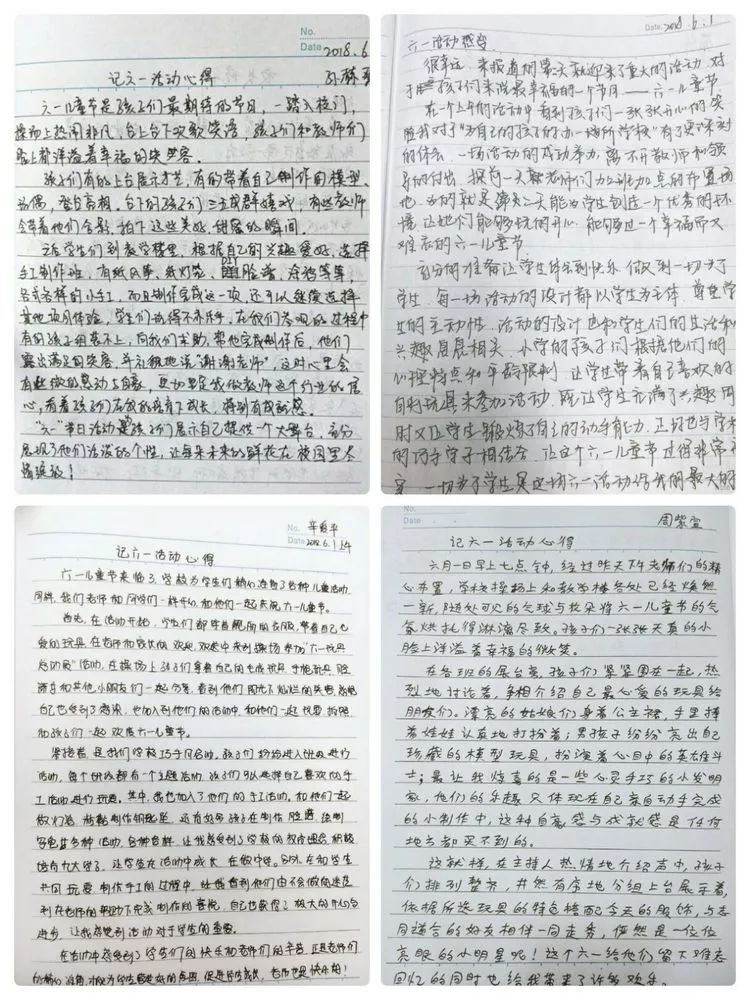 No.
Date 2018.6
记六一活动心得
六一儿童节是孩子们最期待的节日,一踏入校门,
操场上热闹非凡,台上台下欢歌笑语,孩子们和教师们
脸上都洋溢着幸福的笑容。
孩子们有的上台展示才艺,有的带着自己制作的模型、
玩偶,登台亮相。台下的孩子们三五成群嬉戏,有些教师
会带着他们合影,拍下这些美好、甜蜜的瞬间。
之后学生们到教学楼里,根据自己的兴趣爱好,选择
手工制作班,有纸风车、纸灯笼、脸谱、涂鸦等等,
各式各样的小手工,而且制作完成这一项,还可以继续选择
其他项目体验,学生们玩得不亦乐乎。在我们参观的过程中
有的孩子忙不上,向我们求助,帮他完成制作后,他们
露出满足的笑容,并礼貌地说“谢谢老师”,这时心里会
有些欣的感动与自豪,更加坚定我做教师这个行业的信
心,看着孩子们在我的教育下成长,特别有成就感。
“六一”半日活动是孩子们展示自己提供一个大舞台,充分
展现了他们活泼的个性,让每朵未来的鲜花在校园里尽
情绽放!
Date 2018.6.1
六一活动感受
很幸运,来报道的第二天就迎来了重大的活动,对
于孩子们来说最幸福的一个节日——六一儿童节
在一个上午的活动中看到孩子们一张张开心的笑
脸我对了“为自己的孩子们办一场所学校”有了更深刻
的体会。一场活动的成功举办,离不开教师和领
导的付出,提前一天教老师们加班加点的布置场
地,为的就是第二天能为学生创造一个优秀的环
境,让她们能够玩的开心,能够过一个幸福而又
难忘的六一儿童节
充分的准备让学生体会到快乐,做到一切为了
学生,每一场活动的设计都以学生为主体,尊重学
生的主动性,活动的设计也和学生们的生活和
兴趣息息相关,小学的孩子们根据他们的
心理特点和年龄限制,让学生带着自己喜欢的
自制玩具来参加活动,既让学生充满了兴趣同
时又让学生锻炼了自己的动手能力,正好也与学校
的巧手学子相结合,让这个六一儿童节过得非常
一切为了学生是这场六一活动给我们最大的
No. 辛爱平
Date 2018.6.1 上午
记六一活动心得
六一儿童节来临了,学校为学生们精心准备了各种儿童活动
同样,我们老师和同学们一样开心,和他们一起庆祝六一儿童节。
首先,在活动开始,学生们都穿着靓丽的衣服,带着自己心
爱的玩具,在老师和家长的欢迎、欢送中来到操场参加“六一玩具
总动员”活动。在操场上孩子们拿着自己的毛绒玩具、手枪玩具、脸
谱等和其他小朋友们一起分享,看到他们阳光下灿烂的笑容,我能
自己也受到了感染,也加入到他们的活动中,和他们一起玩耍、拍照
和孩子们一起欢度六一儿童节。
紧接着,是我们学校巧手风启动。孩子们纷纷进入班级进行
活动,每个班级都有一个主题活动,孩子们可以选择自己喜欢的手
工活动进行玩耍。其中,我也加入了他们的手工活动,和他们一起
做灯笼、折纸制作钥匙链,还有好多孩子在制作脸谱、绘制
写意等多种活动,各种各样,让我感受到了学校的教育理念,积极
培育九大学子,让学生在活动中成长,在做中学。另外,在和学生
共同玩耍、制作手工的过程中,让我看到他们由不会做而焦急
到在老师的帮助下完成制作的喜悦,自己也获得了极大的开心与
进步,让我感觉到活动对于学生的重要。
在活动中感受到了学生们的快乐和老师们的辛苦,正是老师们
No.
Date 周紫宣
记六一活动心得
六月一日早上七点钟,经过昨天下午老师们的精
心布置,学校操场上和教学楼各处已经焕然
一新,随处可见的气球与花朵将六一儿童节的气
氛烘托得淋漓尽致。孩子们一张张天真的小
脸上洋溢着幸福的微笑。
在各班的展台旁,孩子们紧紧围在一起,热
烈地讨论着,争相介绍自己最心爱的玩具给
朋友们。漂亮的姑娘们身着公主裙,手里捧
着娃娃认真地打扮着;男孩子纷纷亮出自己
珍藏的模型玩具,扮演着心目中的英雄斗
士;最让我惊喜的是一些心灵手巧的小发明
家,他们的乐趣只体现在自己亲自动手完成
的小制作中,这种自豪感与成就感是任何
地方都买不到的。
这就样,在主持人热情地介绍声中,孩子
们排列整齐,井然有序地分组上台展示着,
依据所选玩具的特色搭配今天的服饰,与志
同道合的好友相伴一同走秀,俨然是一位位
亮眼的小明星呢!这个六一给他们留下难忘
回忆的同时也给我带来了许多欢乐。